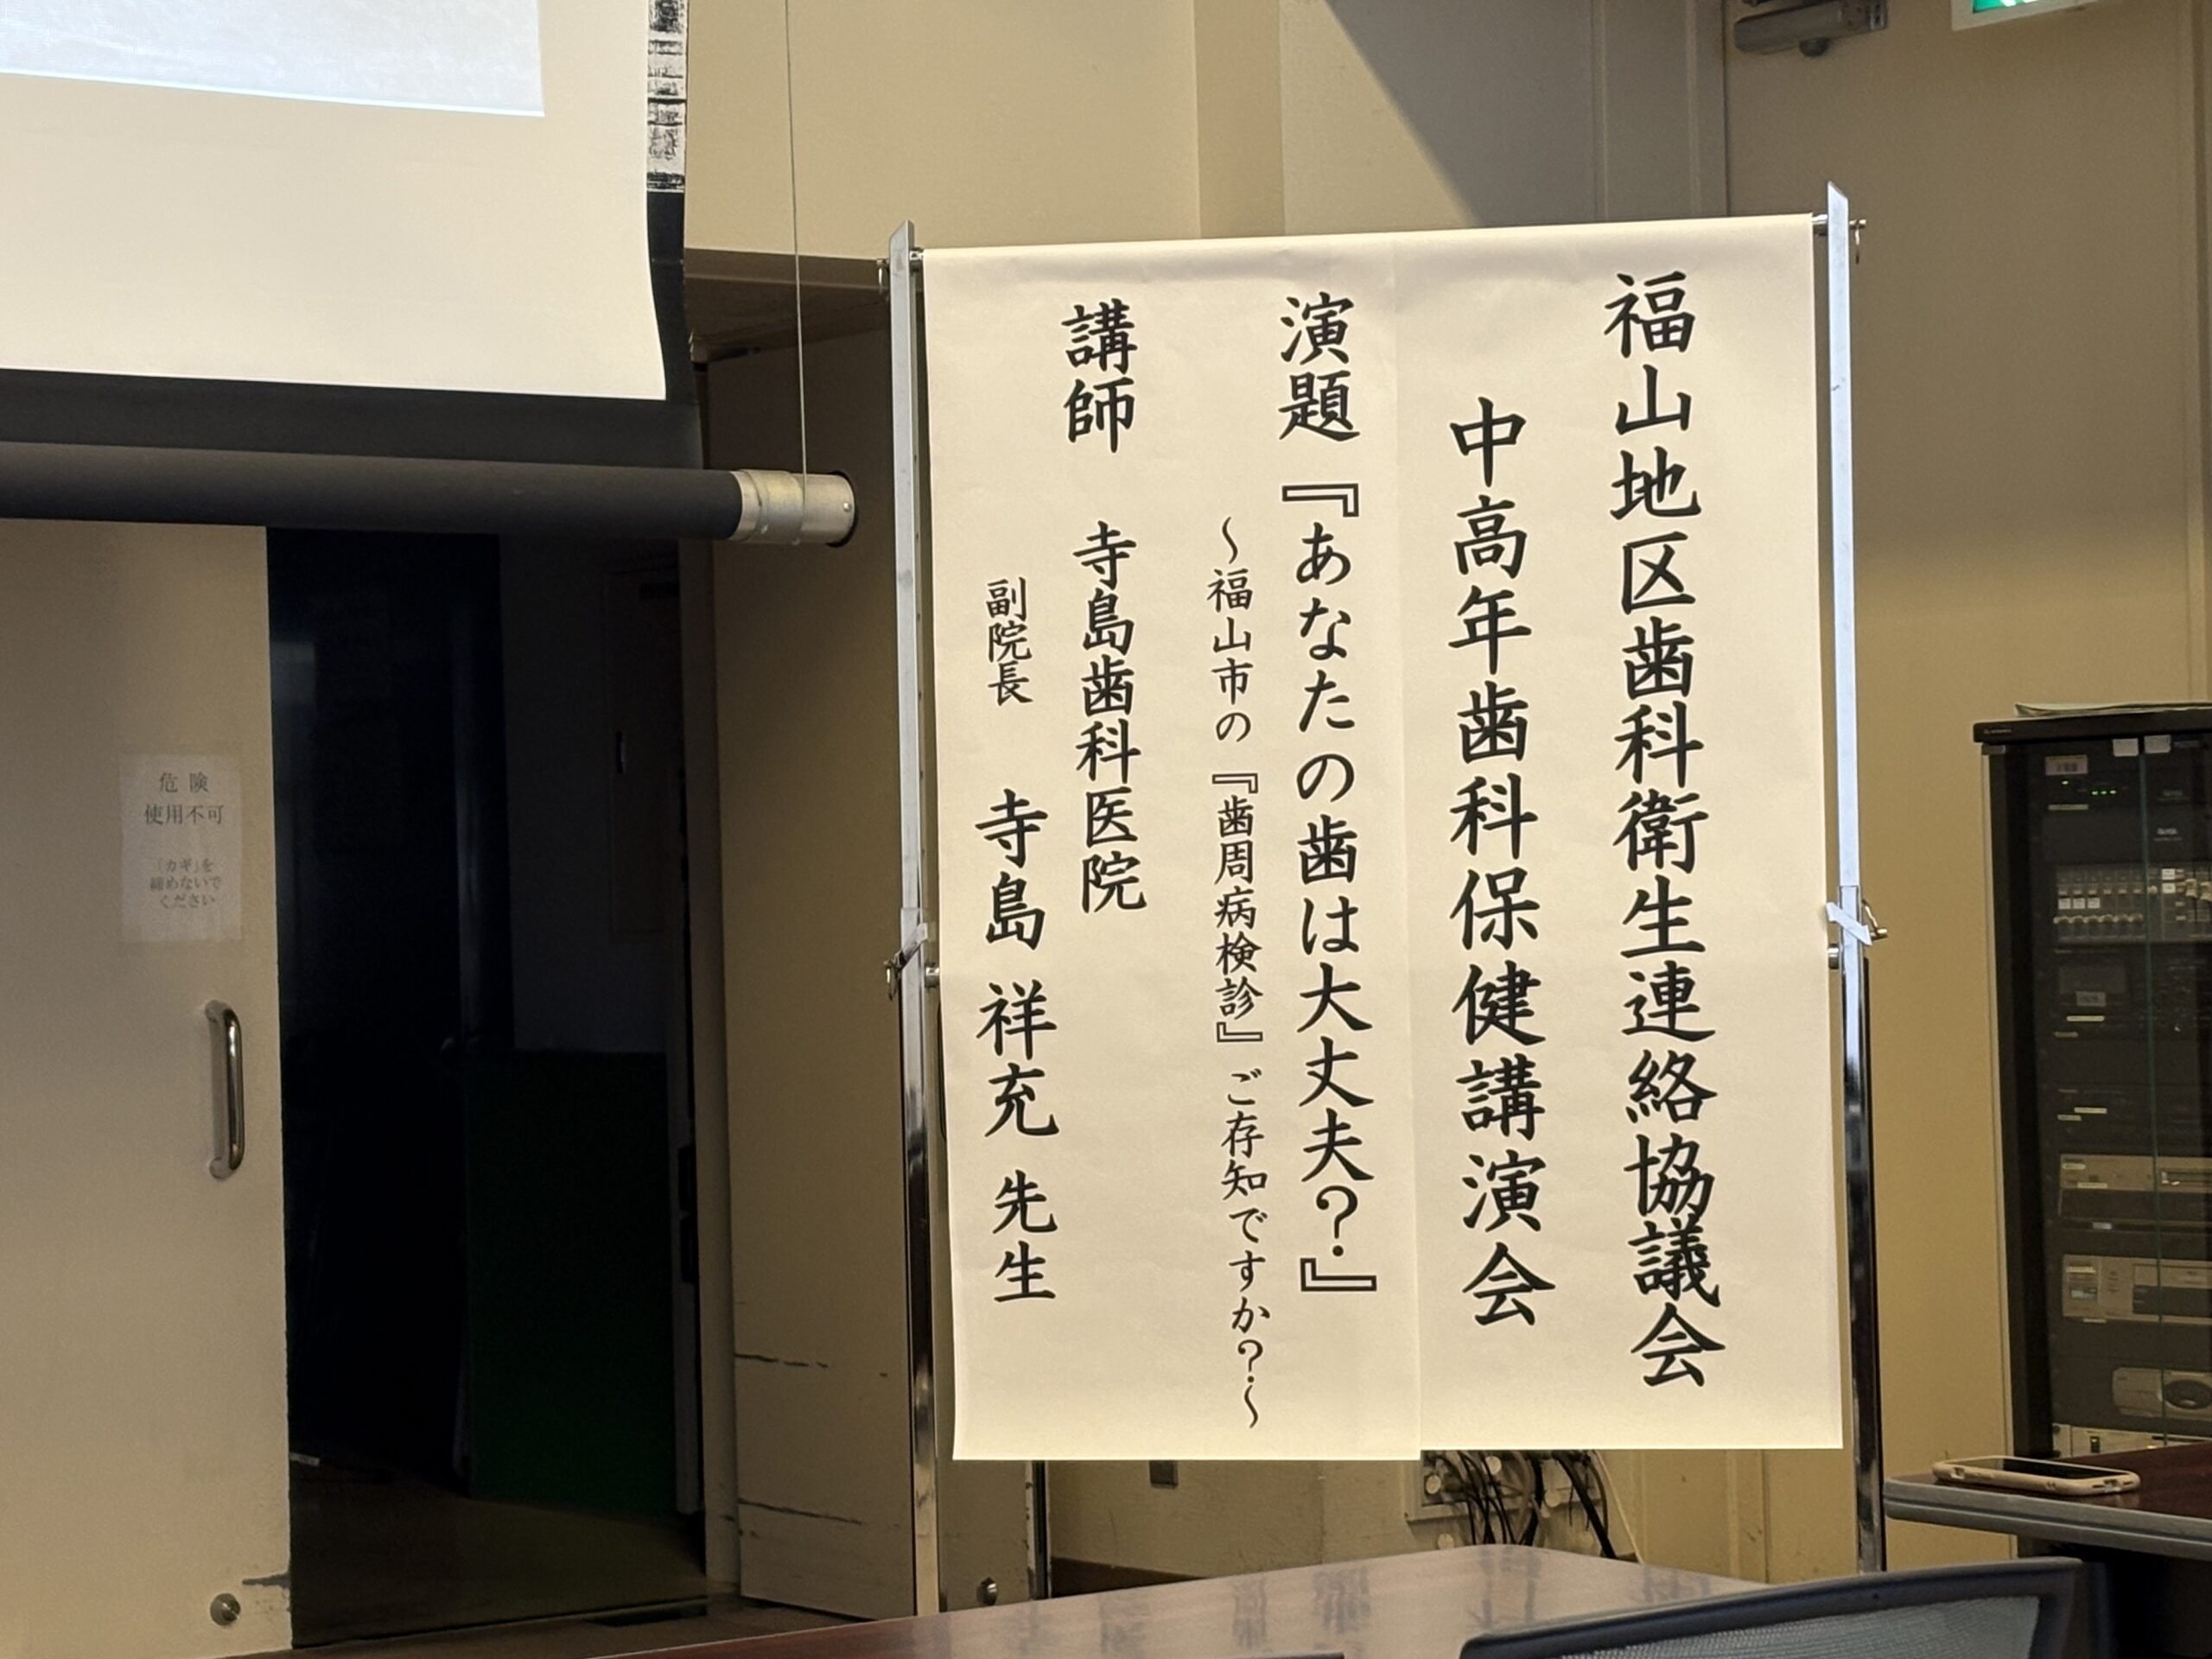 福山地区歯科衛生連絡協議会
中高年歯科保健講演会
演題 『あなたの歯は大丈夫？』
～福山市の『歯周病検診』ご存知ですか？～
講師 寺島歯科医院
副院長 寺島 祥充 先生
危 険
使用不可
「カギ」を
締めないで
ください